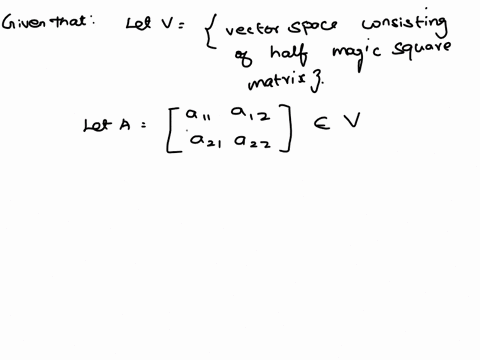 Given that: Let V = { vector space consisting
of half magic square
matrix }.
Let A = [ a11 a12
a21 a22 ] ∈ V